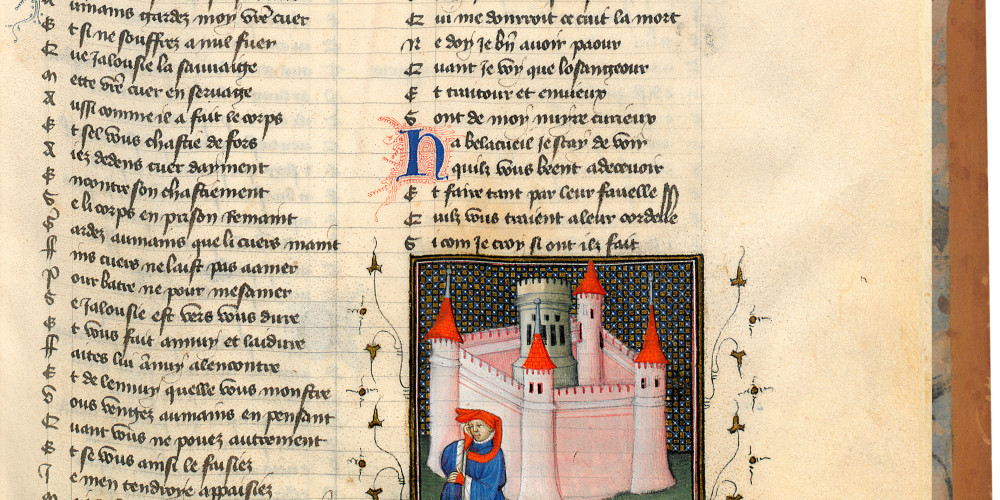 umains gardez moy vr̄e cuer
E t si ne souffrez a nul fuer
Q ue Jalousie la sauuaige
M ette vr̄e cuer en seruaige
A ussi comme ie a fait le corps
E t sel vous chastie de fors
A iez dedens cuer dayment
E ncontre son chastiement
S e li corps en prison Remaint
G ardez aumains que li cuers maint
ff ins cuers ne laist pas a amer
P our batre ne pour mesamer
S e Jalousie est vers vous dure
E t vous fait annuy et laidure
ff aites luy ānuy alencontre
E t de lennuy quelle vous monstre
V ous vengez aumains en pensant
Q uant vous ne pouez autrement
E t se vous ainsi le faisiez
J e men tendroye appaisiez
Q ui me donrroit ce cuit la mort
N e doy Je bn̄ auoir paour
Q uant Je voy que losangeour
E t traitour et enuieux
S ont de moy nuyre curieux
H a belacueil je scay de voir
quilz vous beent a deceuoir
E t faire tant par leur fauelle
Q uilz vous traient a leur cordelle
S i com Je croy si ont ilz fait